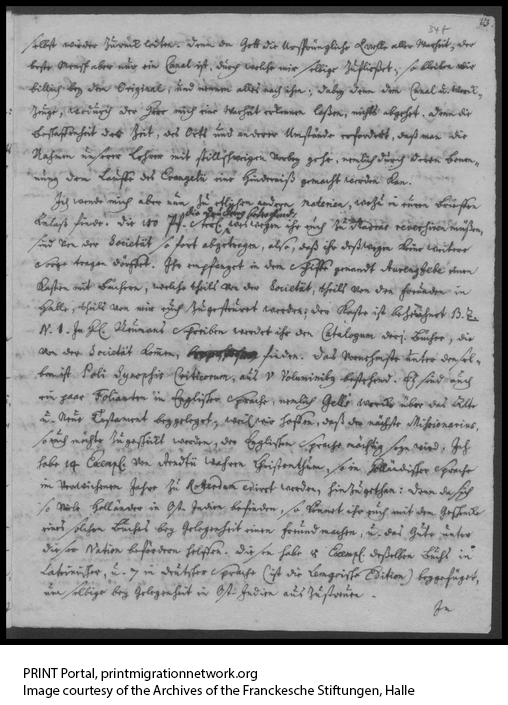 13
selbst wieder zurück leiten. Denn da Gott die Ursprüngliche Quelle aller Warheit, der
beste Mensch aber nur ein Canal ist, durch welche wir selbige zufließet; so bleiben wir
billich bey dem Original, und nennen alles nach ihm, dabey denn dem Canal u. Werck-
zeuge, wodurch der Herr mich eine Warheit erkennen laßen, nichts abgehet. Denn die
Beschaffenheit der Zeit, des Orts und anderer Umstände erfordert, daß man die
Nahmen unserer Lehrer mit stillschweigen vorbey gehe, wenn durch deren Nen-
nung dem Lauffe des Evangelii eine Hinderniß gemacht werden kan.
Ich wende mich aber nun zu etlichen andern materien, wozu in euren Briefen
Anlaß finde. Die 100 Pf. Sterl. welche ihr nach
sind von der Societät so fort abgetragen, also, daß ihr deßwegen keine weitere
Sorge tragen dörffet. Ihr empfanget in dem Schiffe genandt Aurengzebe einen
Kasten mit Büchern, welche theils von der Societät, theils von den freunden in
Halle, theils von mir euch zugesteuret worden; der Kasten ist bezeichnet B. Z.
N. 1. In H. Newmans Schreiben werdet ihr den Catalogum derj. Bücher, die
von der Societät kommen, finden. Das Vornehmste unter densel-
ben ist Poli Synopsis Criticorum, aus V Voluminibus bestehend. Es sind auch
ein paar Folianten in Englischer Sprache, nemlich Gells wercke über das Alte
u. Neue Testament beygeleget, weil wir hoffen, daß der nächste Missionarius,
so euch möchte zugeschickt werden, der Englischen Sprache mächtig seyn wird. Ich
habe 14 Exempl. von Arndts wahren Christenthum, so in Holländischer Sprache
in verwichenen Jahre zu Rotterdam edirt worden, hinzugethan: denn da sich
so viele Holländer in Ost-Indien befinden, so könnet ihr euch mit dem Geschencke
eines solchen Buches bey Gelegenheit einen freund machen, u. das Gute unter
dieser Nation befördern helffen. Diesen habe 8 Exempl. deßelben Buchs in
Lateinischer, u. 7 in deutscher Sprache (ist die Edition) beygefüget,
um selbige bey Gelegenheit in Ost-Indien auszustreuen.
In
PRINT Portal, printmigrationnetwork.org
Image courtesy of the Archives of the Franckesche Stiftungen, Halle